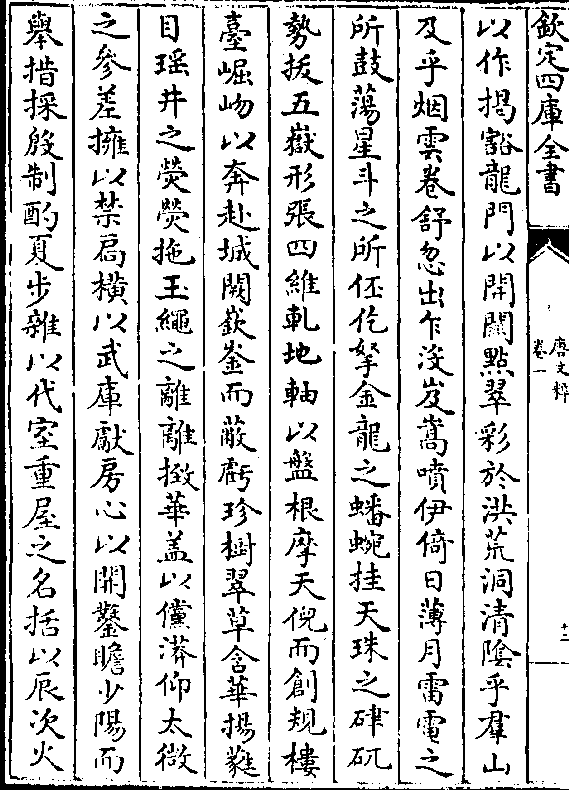 欽定四庫全書
唐文粹
卷一
十二
以作揭豁龍門以開闢點翠彩於洪荒洞清陰乎羣山
及乎烟雲卷舒忽出乍沒岌嵩噴伊倚日薄月雷電之
所鼓蕩星斗之所伾仡拏金龍之蟠蜿挂天珠之硉矹
勢拔五嶽形張四維軋地軸以盤根摩天倪而創規樓
臺崛岉以奔赴城闕嶔崟而蔽虧珍樹翠草含華揚蕤
目瑶井之熒熒拖玉繩之離離撽華盖以儻漭仰太微
之參差擁以禁扄橫以武庫獻房心以開鑿瞻少陽而
舉措採殷制酌夏步雜以代室重屋之名括以辰次火